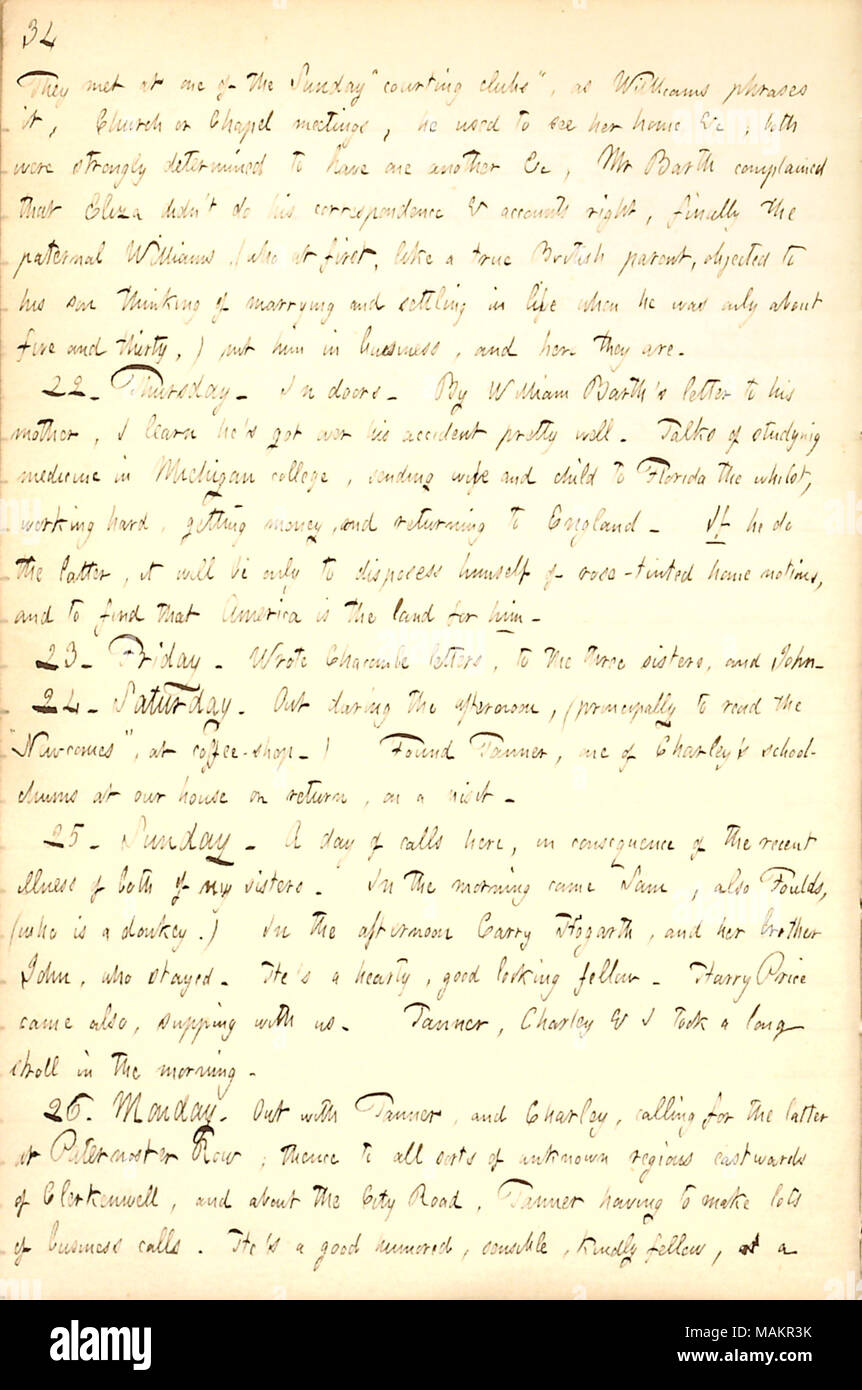 34
They met at one of the Sunday "courting clubs", as Williams phrases
it, Church or Chapel meetings, he used to see her home &c, both
were strongly determined to have one another &c, Mr Barth complained
that Eliza didn't do his correspondence & accounts right, finally the
paternal Williams (who at first, like a true British parent, objected to
his son thinking of marrying and settling in life when he was only about
five and thirty,) put him in business, and here they are.
22. Thursday. In doors. By William Barth's letter to his
mother, I learn he's got over his accident pretty well. Talks of studying
medicine in Michigan college, sending wife and child to Florida the whilst,
working hard, getting money, and returning to England. If he do
the latter, it will be only to disposess himself of rose-tinted home notions,
and to find that America is the land for him.
23. Friday. Wrote Chacombe letters, to the three sisters, and John.
24. Saturday. Out daring the afternoon, (principally to read the
"Newcomes", at coffee-shop.) Found Tanner, one of Charley's school-
chums at our house on return, on a visit.
25. Sunday. A day of calls here, in consequence of the recent
illness of both of my sisters. In the morning came Sam, also Foulds,
(who is a donkey.) In the afternoon Carry Hogarth, and her brother
John, who stayed. He's a hearty, good looking fellow. Harry Price
came also, supping with us. Tanner, Charley & I took a long
stroll in the morning.
26. Monday. Out with Tanner, and Charley, calling for the latter
at Paternoster Row; thence to all sorts of unknown regions eastwards
of Clerkenwell, and about the City Road, Tanner having to make lots
of business calls. He's a good humored, sensible, kindly fellow, a
alamy
Image ID: MAKR3K
www.alamy.com